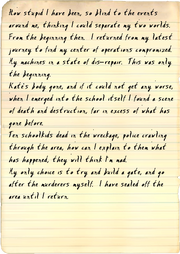 How stupid I have been, so blind to the events
around me, thinking I could separate my two worlds.
From the beginning then. I returned from my latest
journey to find my center of operations compromised.
My machines in a state of dis-repair. This was only
the beginning.
Kate's body gone, and if it could not get any worse,
when I emerged into the school itself I found a scene
of death and destruction, far in excess of what has
gone before.
Ten schoolkids dead in the wreckage, police crawling
through the area, how can I explain to them what
has happened, they will think I'm mad.
My only choice is to try and build a gate, and go
after the murderers myself. I have sealed off the
area until I return.